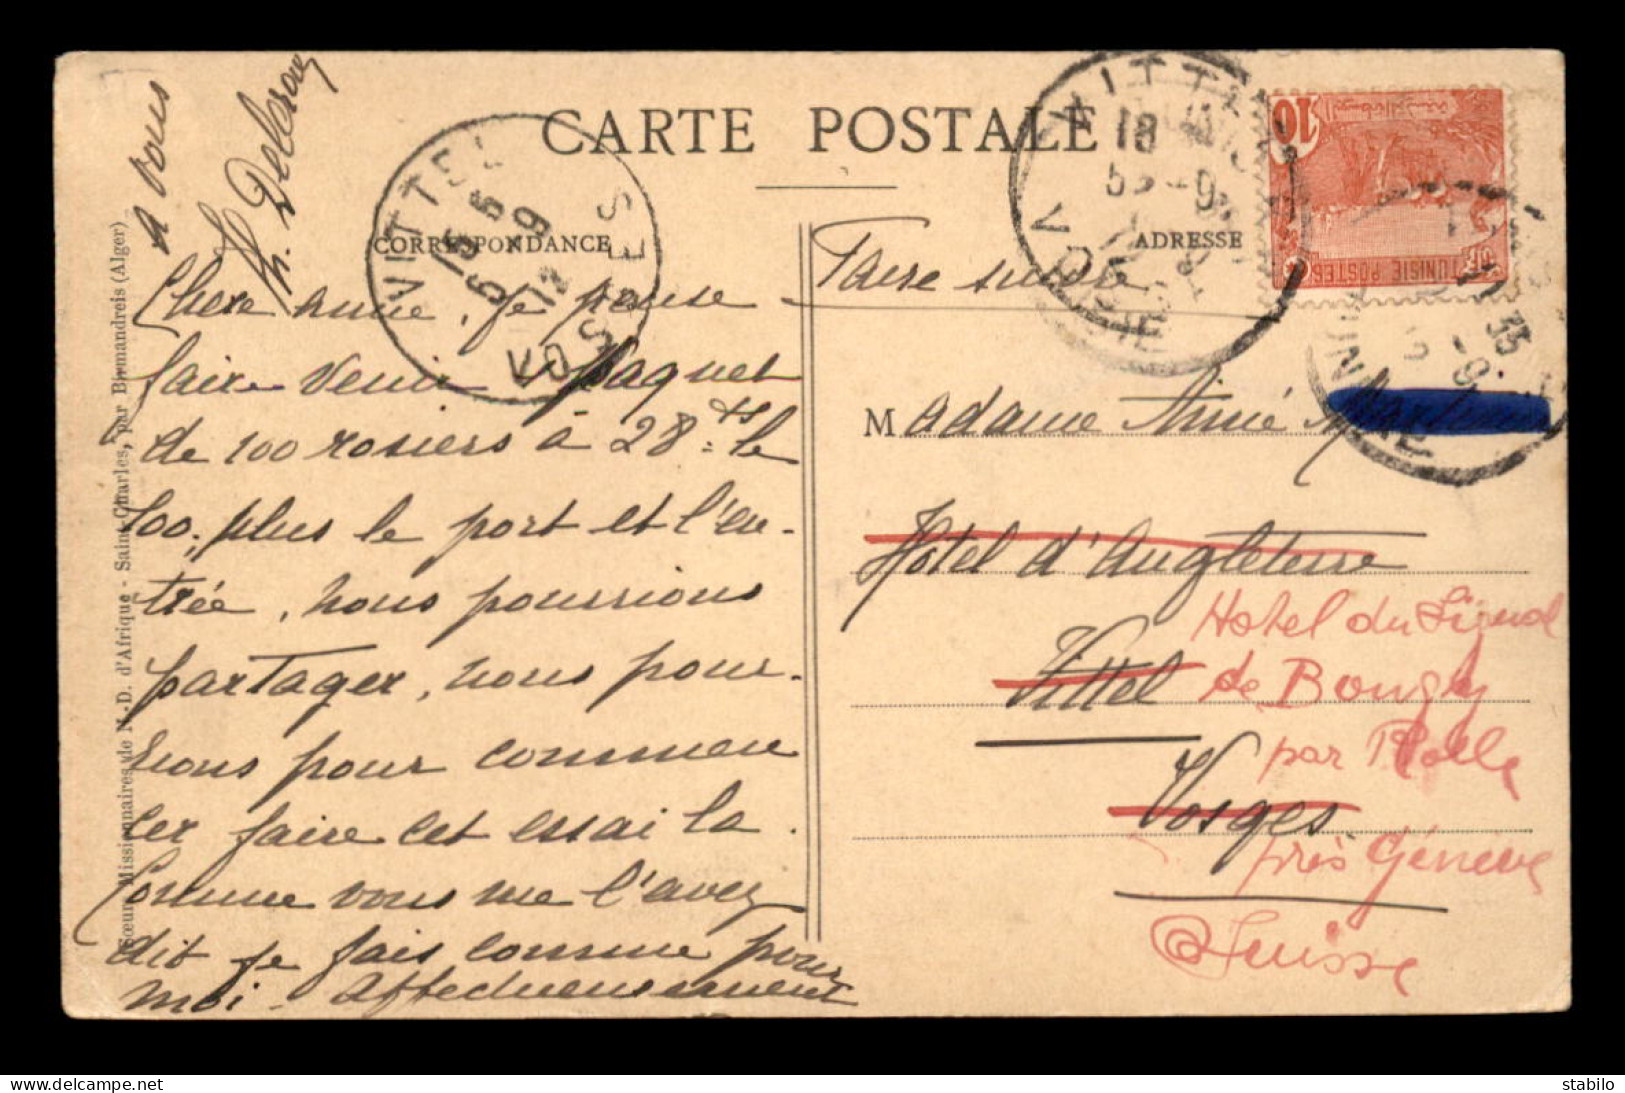 CARTE POSTALE
CORRESPONDANCE
ADRESSE
Faire suivre
Chère amie, je pense
faire venir 1 paquet
de 100 rosiers à 28 fts le
100, plus le port et l'en-
trée, nous pourrions
partager, nous pour-
rions pour commen
cer faire cet essai la.
Comme vous me l'avez
dit je fais comme pour
moi. Affectueusement
a vous
Madame Aimé
Hôtel d'Angleterre
Vittel
Vosges
Hotel du Signal
de Bougy
par Rolle
près Génève
Suisse
Sœurs Missionnaires de N.-D. d'Afrique - Saint-Charles, par Birmandreis (Alger)
VITTEL
VOSGES
10
TUNISIE POSTES
stabilo